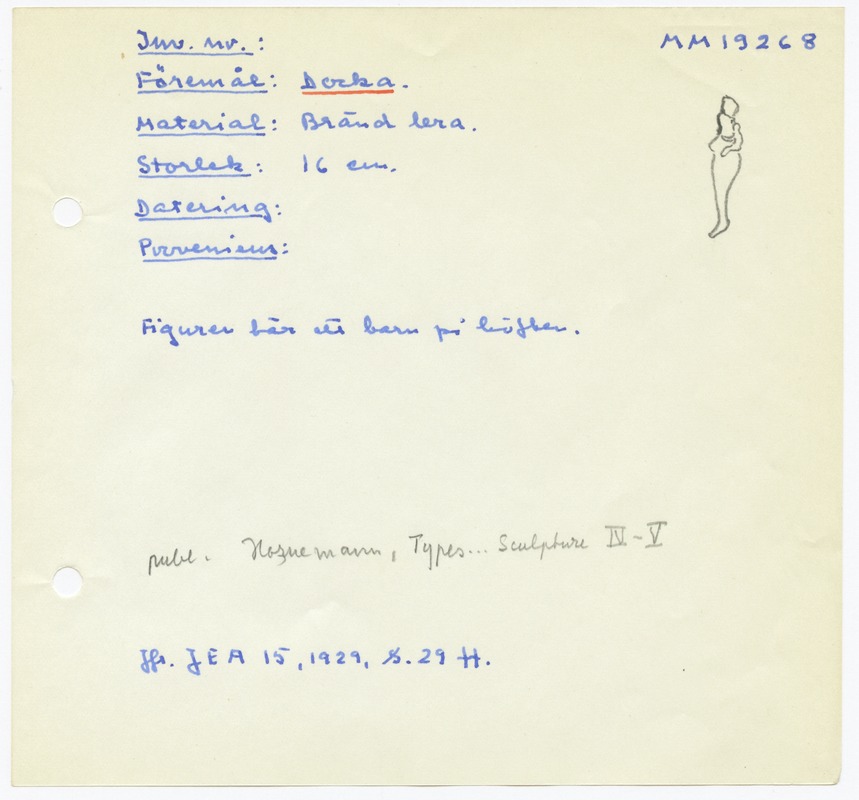 Inv. nr.: MM 19268
Föremål: Docka.
Material: Bränd lera.
Storlek: 16 cm.
Datering:
Proveniens:
Figuren bär ett barn på höften.
publ. Hornemann, Types... Sculpture IV-V
Jfr. JEA 15, 1929, S. 29 ff.